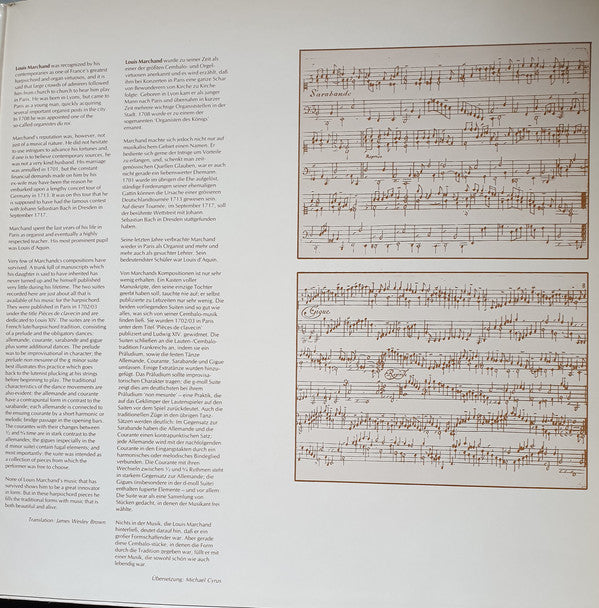 Louis Marchand was recognized by his
contemporaries as one of France's greatest
harpsichord and organ virtuosos, and it is
said that large crowds of admirers followed
him from church to church to hear him play
in Paris. He was born in Lyons, but came to
Paris as a young man, quickly acquiring
several important organist posts in the city
In 1708 he was appointed one of the
so-called organistes du roi.
Marchand's reputation was, however, not
just of a musical nature. He did not hesitate
to use intrigues to advance his fortunes and,
if one is to believe contemporary sources, he
was not a very kind husband. His marriage
was annulled in 1701, but the constant
financial demands made on him by his
ex-wife may have been the reason he
embarked upon a lengthy concert tour of
Germany in 1713. It was on this tour that he
is supposed to have had the famous contest
with Johann Sebastian Bach in Dresden in
September 1717.
Marchand spent the last years of his life in
Paris as organist and eventually a highly
respected teacher. His most prominent pupil
was Louis d'Aquin.
Very few of Marchand's compositions have
survived. A trunk full of manuscripts which
his daughter is said to have inherited has
never turned up and he himself published
very little during his lifetime. The two suites
recorded here are just about all that is
available of his music for the harpsichord.
They were published in Paris in 1702/03
under the title Pièces de clavecin and are
dedicated to Louis XIV. The suites are in the
French lute/harpsichord tradition, consisting
of a prelude and the obligatory dances,
allemande, courante, sarabande and gigue
plus some additional dances. The prelude
was to be improvisational in character; the
prelude non mesurée of the g minor suite
best illustrates this practice which goes
back to the lutenist plucking at his strings
before beginning to play. The traditional
characteristics of the dance movements are
also evident: the allemande and courante
have a contrapuntal form in contrast to the
sarabande; each allemande is connected to
the ensuing courante by a short harmonic or
melodic bridge passage in the opening bars.
The courantes with their changes between
³⁄₂ and ⁶⁄₄ time are in stark contrast to the
allemandes; the gigues (especially in the
d minor suite) contain fugal elements; and
most importantly: the suite was intended as
a collection of pieces from which the
performer was free to choose.
None of Louis Marchand's music that has
survived shows him to be a great innovator
in form. But in these harpsichord pieces he
fills the traditional forms with music that is
both beautiful and alive.
Translation: James Wesley Brown
Louis Marchand wurde zu seiner Zeit als
einer der größten Cembalo- und Orgel-
virtuosen anerkannt und es wird erzählt, daß
ihm bei Konzerten in Paris eine ganze Schar
von Bewunderern von Kirche zu Kirche
folgte. Geboren in Lyon kam er als junger
Mann nach Paris und übernahm in kurzer
Zeit mehrere wichtige Organistenstellen in der
Stadt. 1708 wurde er zu einem der
sogenannten 'Organisten des Königs'
ernannt.
Marchand machte sich jedoch nicht nur auf
musikalischem Gebiet einen Namen. Er
bediente sich gerne der Intrige um Vorteile
zu erlangen, und, schenkt man zeit-
genössischen Quellen Glauben, war er auch
nicht gerade ein liebenswerter Ehemann.
1701 wurde im übrigen die Ehe aufgelöst,
ständige Forderungen seiner ehemaligen
Gattin können die Ursache einer grösseren
Deutschlandtournée 1713 gewesen sein.
Auf dieser Tournée, im September 1717, soll
der berühmte Wettstreit mit Johann
Sebastian Bach in Dresden stattgefunden
haben.
Seine letzten Jahre verbrachte Marchand
wieder in Paris als Organist und mehr und
mehr auch als gesuchter Lehrer. Sein
bedeutendster Schüler war Louis d'Aquin.
Von Marchands Kompositionen ist nur sehr
wenig erhalten. Ein Kasten voller
Manuskripte, den seine einzige Tochter
geerbt haben soll, tauchte nie auf; er selbst
publizierte zu Lebzeiten nur sehr wenig. Die
beiden vorliegenden Suiten sind so gut wie
alles, was sich von seiner Cembalo-musik
finden ließ. Sie wurden 1702/03 in Paris
unter dem Titel 'Pièces de clavecin'
publiziert und Ludwig XIV. gewidmet. Die
Suiten schließen an die Lauten-/Cembalo-
tradition Frankreichs an, indem sie ein
Präludium, sowie die festen Tänze
Allemande, Courante, Sarabande und Gigue
umfassen. Einige Extratänze wurden hinzu-
gefügt. Das Präludium sollte improvisa-
torischen Charakter tragen; die g-moll Suite
zeigt dies am deutlichsten bei ihrem
Präludium 'non mesurée' – eine Praktik, die
auf das Geklimper der Lautenspieler auf den
Saiten vor dem Spiel zurückdeutet. Auch die
traditionellen Züge in den übrigen Tanz-
Sätzen werden deutlich: im Gegensatz zur
Sarabande haben die Allemande und die
Courante einen kontrapunktischen Satz;
jede Allemande wird mit der nachfolgenden
Courante in den Eingangstakten durch ein
harmonisches oder melodisches Bindeglied
verbunden. Die Courante mit ihren
Wechseln zwischen ³⁄₂ und ⁶⁄₄ Rythmen steht
in starkem Gegensatz zur Allemande; die
Gigues (insbesondere in der d-moll Suite)
enthalten fugierte Elemente – und vor allem:
Die Suite war als eine Sammlung von
Stücken gedacht, in denen der Musikant frei
wählte.
Nichts in der Musik, die Louis Marchand
hinterließ, deutet darauf hin, daß er ein
großer Formschaffender war. Aber gerade
diese Cembalo-stücke, in denen die Form
durch die Tradition gegeben war, füllt er mit
einer Musik, die sowohl schön wie auch
lebendig war.
Übersetzung: Michael Cyrus
Sarabande
Reprise
8
Gigue